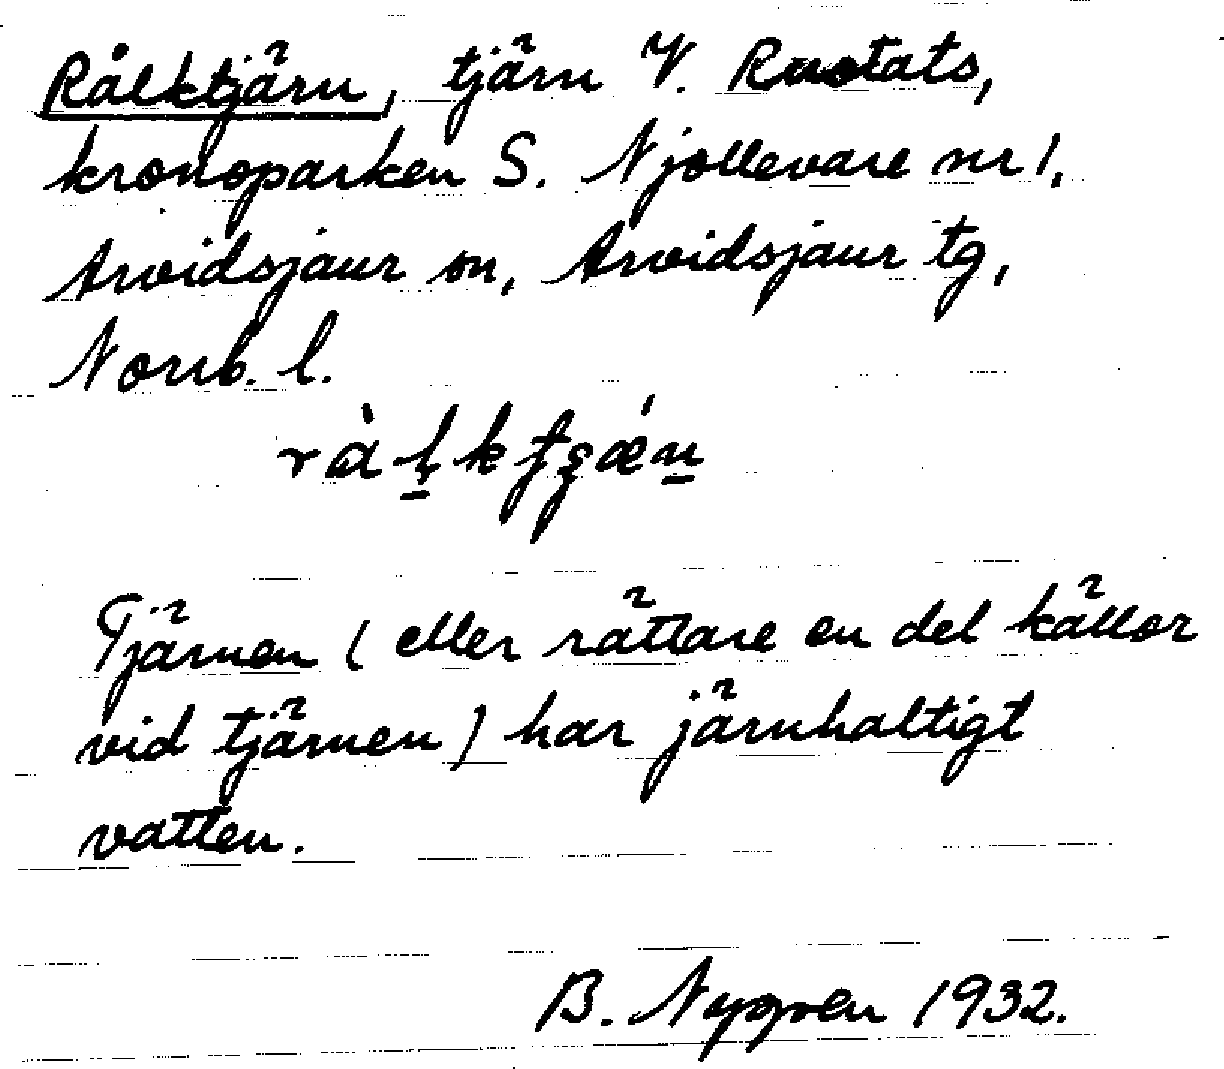 Rålktjärn, tjärn V. Rustats,
kronoparken S. Njollevare nr 1,
Arvidsjaur sn, Arvidsjaur tg,
Norrb. l.
Tjärnen (eller rättare en del källor
vid tjärnen) har järnhaltigt
vatten.
B. Nygren 1932.